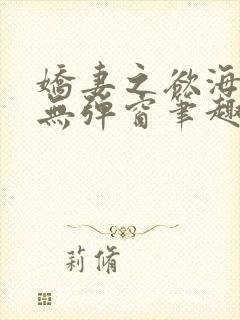 嬌妻之欲海
無彈窗筆趣
莉脩